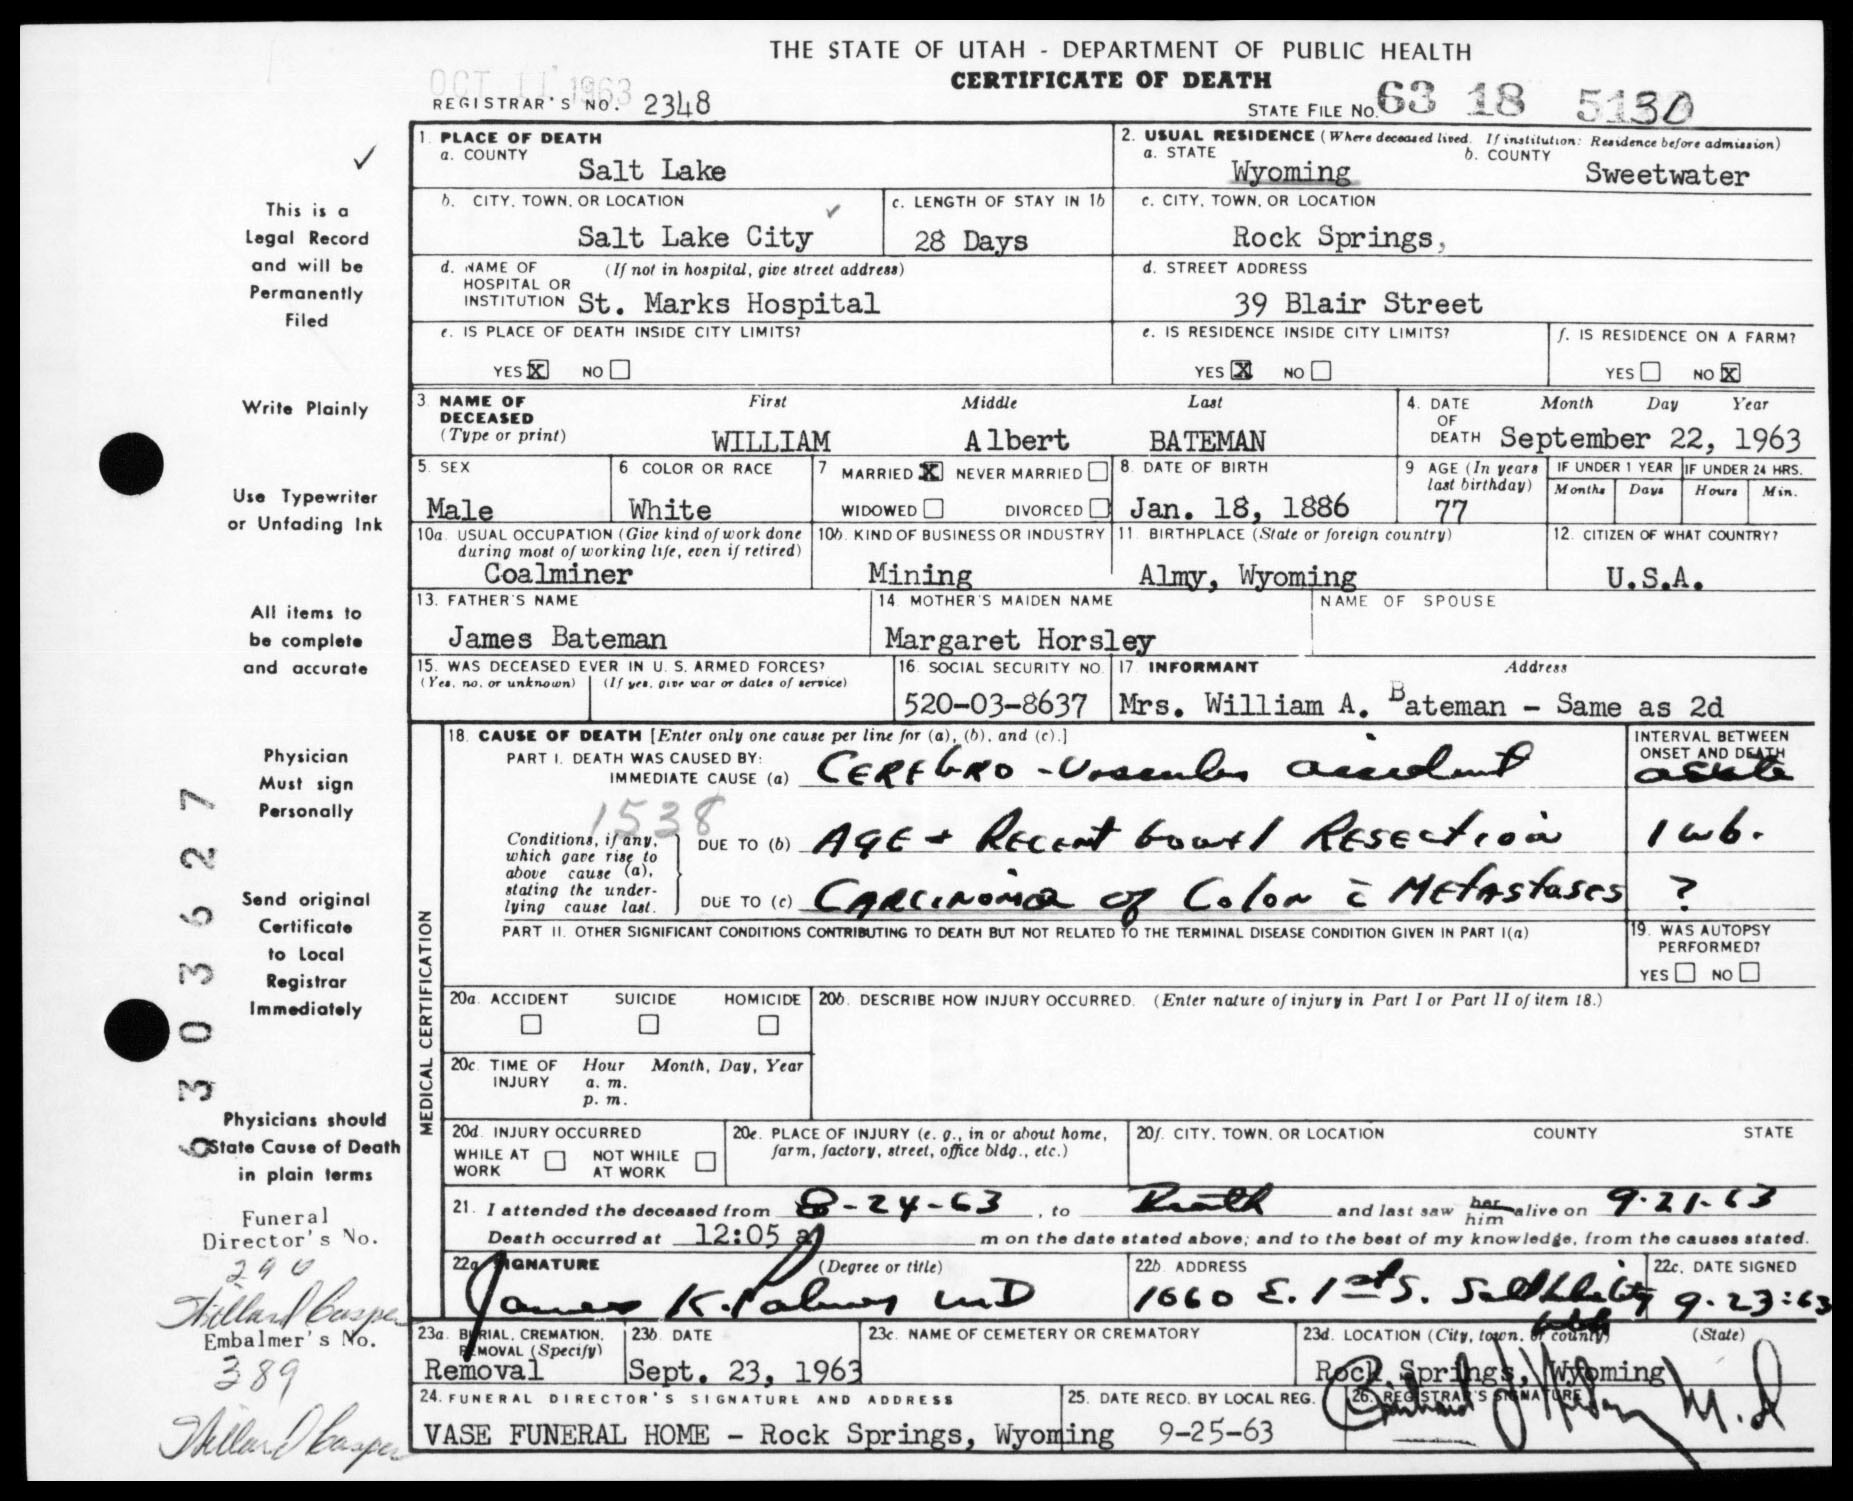 THE STATE OF UTAH - DEPARTMENT OF PUBLIC HEALTH
CERTIFICATE OF DEATH
OCT 11 1963
REGISTRAR'S NO. 2348
STATE FILE NO. 63 18 5130
This is a
Legal Record
and will be
Permanently
Filed
Write Plainly
Use Typewriter
or Unfading Ink
All items to
be complete
and accurate
Physician
Must sign
Personally
Send original
Certificate
to Local
Registrar
Immediately
Physicians should
State Cause of Death
in plain terms
Funeral
Director's No.
290
Willard Casper
Embalmer's No.
389
Willard Casper
6303627
1. PLACE OF DEATH
a. COUNTY
Salt Lake
2. USUAL RESIDENCE (Where deceased lived. If institution: Residence before admission)
a. STATE Wyoming b. COUNTY Sweetwater
b. CITY, TOWN, OR LOCATION
Salt Lake City
c. LENGTH OF STAY IN 1b
28 Days
c. CITY, TOWN, OR LOCATION
Rock Springs,
d. NAME OF HOSPITAL OR INSTITUTION (If not in hospital, give street address)
St. Marks Hospital
d. STREET ADDRESS
39 Blair Street
e. IS PLACE OF DEATH INSIDE CITY LIMITS?
YES X NO
e. IS RESIDENCE INSIDE CITY LIMITS?
YES X NO
f. IS RESIDENCE ON A FARM?
YES NO X
3. NAME OF DECEASED (Type or print)
First Middle Last
WILLIAM Albert BATEMAN
4. DATE OF DEATH
Month Day Year
September 22, 1963
5. SEX
Male
6. COLOR OR RACE
White
7. MARRIED X NEVER MARRIED
WIDOWED DIVORCED
8. DATE OF BIRTH
Jan. 18, 1886
9. AGE (In years last birthday)
77
IF UNDER 1 YEAR
Months Days
IF UNDER 24 HRS.
Hours Min.
10a. USUAL OCCUPATION (Give kind of work done during most of working life, even if retired)
Coalminer
10b. KIND OF BUSINESS OR INDUSTRY
Mining
11. BIRTHPLACE (State or foreign country)
Almy, Wyoming
12. CITIZEN OF WHAT COUNTRY?
U.S.A.
13. FATHER'S NAME
James Bateman
14. MOTHER'S MAIDEN NAME
Margaret Horsley
NAME OF SPOUSE
15. WAS DECEASED EVER IN U. S. ARMED FORCES?
(Yes, no, or unknown) (If yes, give war or dates of service)
16. SOCIAL SECURITY NO.
520-03-8637
17. INFORMANT Address
Mrs. William A. Bateman - Same as 2d
MEDICAL CERTIFICATION
18. CAUSE OF DEATH [Enter only one cause per line for (a), (b), and (c).]
PART I. DEATH WAS CAUSED BY:
IMMEDIATE CAUSE (a) Cerebro-Vascular accident
INTERVAL BETWEEN ONSET AND DEATH
acute
1538
Conditions, if any, which gave rise to above cause (a), stating the underlying cause last.
DUE TO (b) Age + Recent bowel Resection 1 wk.
DUE TO (c) Carcinoma of Colon c̄ Metastases ?
PART II. OTHER SIGNIFICANT CONDITIONS CONTRIBUTING TO DEATH BUT NOT RELATED TO THE TERMINAL DISEASE CONDITION GIVEN IN PART I(a)
19. WAS AUTOPSY PERFORMED?
YES NO
20a. ACCIDENT SUICIDE HOMICIDE
20b. DESCRIBE HOW INJURY OCCURRED. (Enter nature of injury in Part I or Part II of item 18.)
20c. TIME OF INJURY
Hour Month, Day, Year
a. m.
p. m.
20d. INJURY OCCURRED
WHILE AT WORK NOT WHILE AT WORK
20e. PLACE OF INJURY (e. g., in or about home, farm, factory, street, office bldg., etc.)
20f. CITY, TOWN, OR LOCATION COUNTY STATE
21. I attended the deceased from 8-24-63, to Death and last saw her him alive on 9-21-63
Death occurred at 12:05 a m on the date stated above; and to the best of my knowledge, from the causes stated.
22a. SIGNATURE (Degree or title)
James K. Palmer MD
22b. ADDRESS
1060 E. 1st S. Salt Lake City Utah
22c. DATE SIGNED
9-23-63
23a. BURIAL, CREMATION, REMOVAL (Specify)
Removal
23b. DATE
Sept. 23, 1963
23c. NAME OF CEMETERY OR CREMATORY
23d. LOCATION (City, town, or county) (State)
Rock Springs, Wyoming
24. FUNERAL DIRECTOR'S SIGNATURE AND ADDRESS
VASE FUNERAL HOME - Rock Springs, Wyoming
25. DATE RECD. BY LOCAL REG.
9-25-63
26. REGISTRAR'S SIGNATURE
M.D